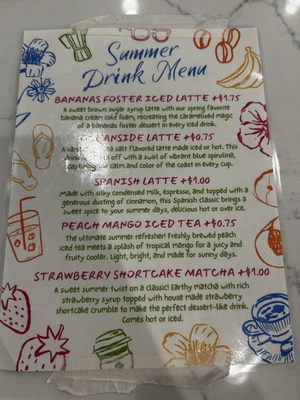 Summer
Drink Menu
BANANAS FOSTER ICED LATTE +$1.75
A sweet brown sugar syrup latte with our spring favorite
banana cream cold foam, recreating the caramelized magic
of a bananas foster dessert in every iced drink.
ANSIDE LATTE +$0.75
salt flavored latte made iced or hot. This
off with a swirl of vibrant blue spirulina,
calm and color of the coast in every cup.
SPANISH LATTE +$1.00
Made with silky condensed milk, espresso, and topped with a
generous dusting of cinnamon, this Spanish classic brings a
sweet spice to your summer days, delicious hot or ice.
PEACH MANGO ICED TEA +$0.75
The ultimate summer refresher! Freshly brewed peach
iced tea meets a splash of tropical mango for a juicy and
fruity cooler. Light, bright, and made for sunny days.
STRAWBERRY SHORTCAKE MATCHA +$1.00
A sweet summer twist on a classic earthy matcha with rich
strawberry syrup topped with house made strawberry
shortcake crumble to make the perfect dessert-like drink.
Comes hot or iced.